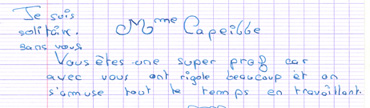 Je suis
solitaire.
sans vous
Mme Capeille
Vous êtes une super prof car
avec vous ont rigole beaucoup et on
s'amuse tout le temps en travaillant.